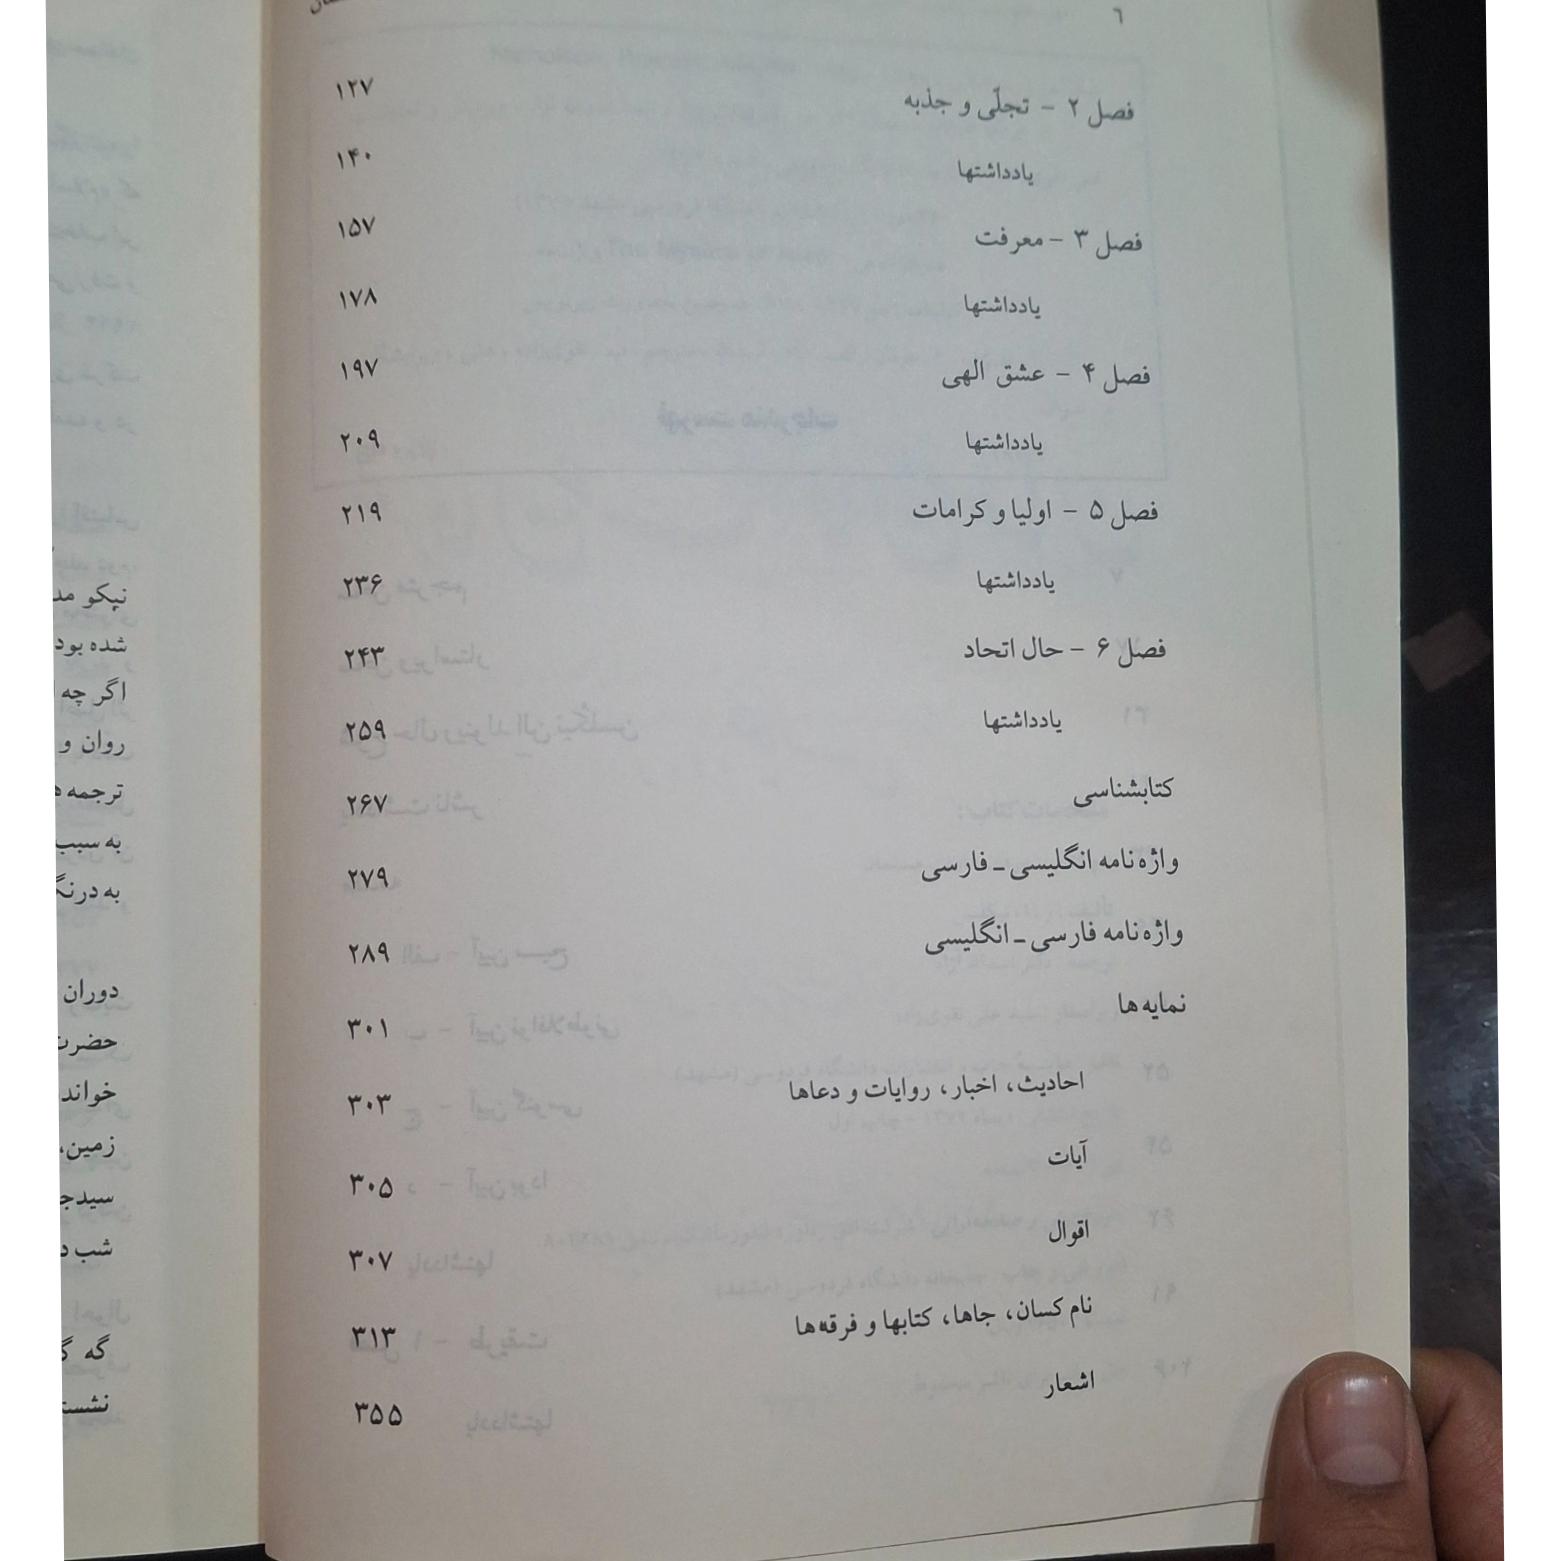 ٦
فصل ۲ - تجلّی و جذبه ۱۲۷
یادداشتها ۱۴۰
فصل ۳ - معرفت ۱۵۷
یادداشتها ۱۷۸
فصل ۴ - عشق الهی ۱۹۷
یادداشتها ۲۰۹
فصل ۵ - اولیا و کرامات ۲۱۹
یادداشتها ۲۳۶
فصل ۶ - حال اتحاد ۲۴۳
یادداشتها ۲۵۹
کتابشناسی ۲۶۷
واژه‌نامه انگلیسی ـ فارسی ۲۷۹
واژه‌نامه فارسی ـ انگلیسی ۲۸۹
نمایه‌ها ۳۰۱
احادیث، اخبار، روایات و دعاها ۳۰۳
آیات ۳۰۵
اقوال ۳۰۷
نام کسان، جاها، کتابها و فرقه‌ها ۳۱۳
اشعار ۳۵۵
نیکو
شده بود
اگر چه
روان و
ترجمه
به سبب
دوران
حضرت
خواند
زمین،
شب
گه